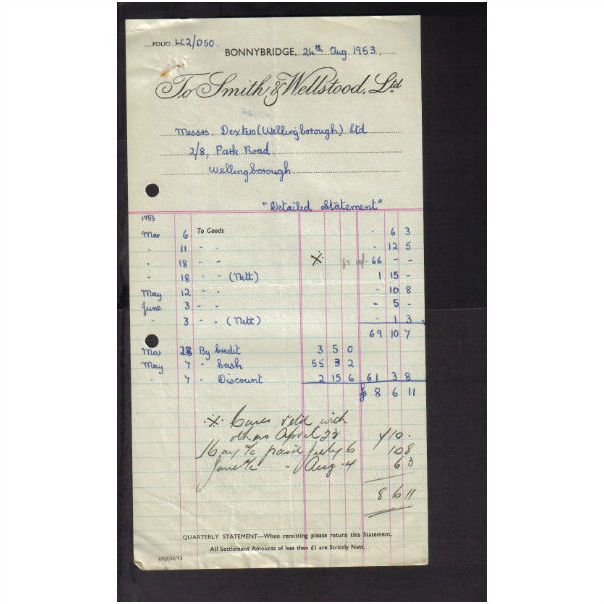 FOLIO LC2/D50
BONNYBRIDGE, 24th Aug. 1953.
To Smith & Wellstood, Ltd
Messrs Dexters (Wellingborough) Ltd
2/8, Park Road
Wellingborough
"Detailed Statement"
1953
Mar 6 To Goods - 6 3
11 - - - 12 5
- 18 - - X 66 - -
- 18 - - (Nett) 1 15 -
May 12 - - - 10 8
June 3 - - - 5 -
3 - - (Nett) - 1 3
69 10 7
Mar 28 By Credit 3 5 0
May 7 - Cash 55 3 2
- 7 - Discount 2 15 6 61 3 8
£ 8 6 11
X Cases retd with
others April 22 7/10.
May a/c paid July 6 10 8
June a/c - Aug. 4 6 3
8 6 11
QUARTERLY STATEMENT—When remitting please return this Statement.
All Settlement Amounts of less than £1 are Strictly Nett.